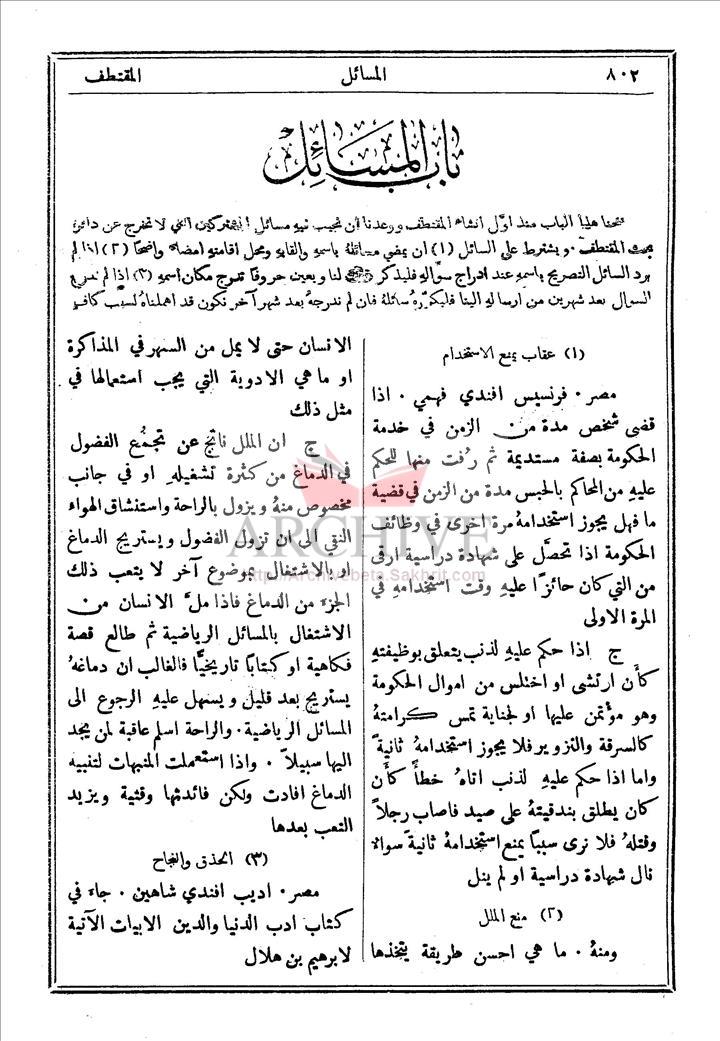 ٨٠٢
المسائل
المقتطف
باب المسائل
فتحنا هذا الباب منذ اوّل انشاء المقتطف ووعدنا ان نجيب فيه مسائل المشتركين التي لا تخرج عن دائرة
بحث المقتطف. ويشترط على السائل (١) ان يمضي مسائله باسمه والقابه ومحل اقامته امضاء واضحاً (٢) اذا لم
يرد السائل التصريح باسمه عند ادراج سؤاله فليذكر ذلك لنا ويعين حروفاً تدرج مكان اسمه (٣) اذا لم ندرج
السوال بعد شهرين من ارساله الينا فليكرّره سائله فان لم ندرجه بعد شهر آخر نكون قد اهملناه لسبب كافٍ
(١) عقاب يمنع الاستخدام
مصر. فرنسيس افندي فهمي. اذا
قضى شخص مدة من الزمن في خدمة
الحكومة بصفة مستديمة ثم رُفت منها للحكم
عليه من المحاكم بالحبس مدة من الزمن في قضية
ما فهل يجوز استخدامهُ مرة اخرى في وظائف
الحكومة اذا تحصَّل على شهادة دراسية ارقى
من التي كان حائزًا عليهِ وقت استخدامهِ في
المرة الاولى
ج اذا حكم عليهِ لذنب يتعلق بوظيفتهِ
كأن ارتشى او اختلس من اموال الحكومة
وهو مؤتمن عليها او لجناية تمس كرامتهُ
كالسرقة والتزوير فلا يجوز استخدامهُ ثانيةً
واما اذا حكم عليهِ لذنب اتاهُ خطأً كأن
كان يطلق بندقيتهُ على صيد فاصاب رجلاً
وقتلهُ فلا نرى سبباً يمنع استخدامهُ ثانيةً سواء
نال شهادة دراسية او لم ينل
(٢) منع الملل
ومنهُ. ما هي احسن طريقة يتخذها
الانسان حتى لا يمل من السهر في المذاكرة
او ما هي الادوية التي يجب استعمالها في
مثل ذلك
ج ان الملل ناتج عن تجمُّع الفضول
في الدماغ من كثرة تشغيلهِ او في جانب
مخصوص منهُ ويزول بالراحة واستنشاق الهواء
النقي الى ان تزول الفضول ويستريح الدماغ
او بالاشتغال بموضوع آخر لا يتعب ذلك
الجزء من الدماغ فاذا ملَّ الانسان من
الاشتغال بالمسائل الرياضية ثم طالع قصة
فكاهية او كتاباً تاريخيًّا فالغالب ان دماغهُ
يستريح بعد قليل ويسهل عليهِ الرجوع الى
المسائل الرياضية. والراحة اسلم عاقبة لمن يجد
اليها سبيلاً. واذا استعملت المنبهات لتنبيه
الدماغ افادت ولكن فائدتها وقتية ويزيد
التعب بعدها
(٣) الحذق والنجاح
مصر. اديب افندي شاهين. جاء في
كتاب ادب الدنيا والدين الابيات الآتية
لابرهيم بن هلال
ARCHIVE
http://Archivebeta.Sakhrit.com